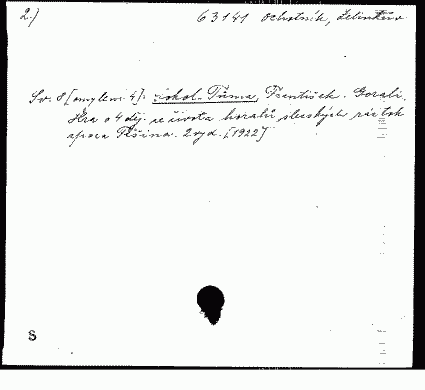 2.) 63141 Ochotník, Zelinkův
Sv. 8 [omylem 4]: Sokol-Tůma, František. Gorali.
Hra o 4 děj. ze života horalů slezských
aprca Pešina. 2 vyd. [1922]
S